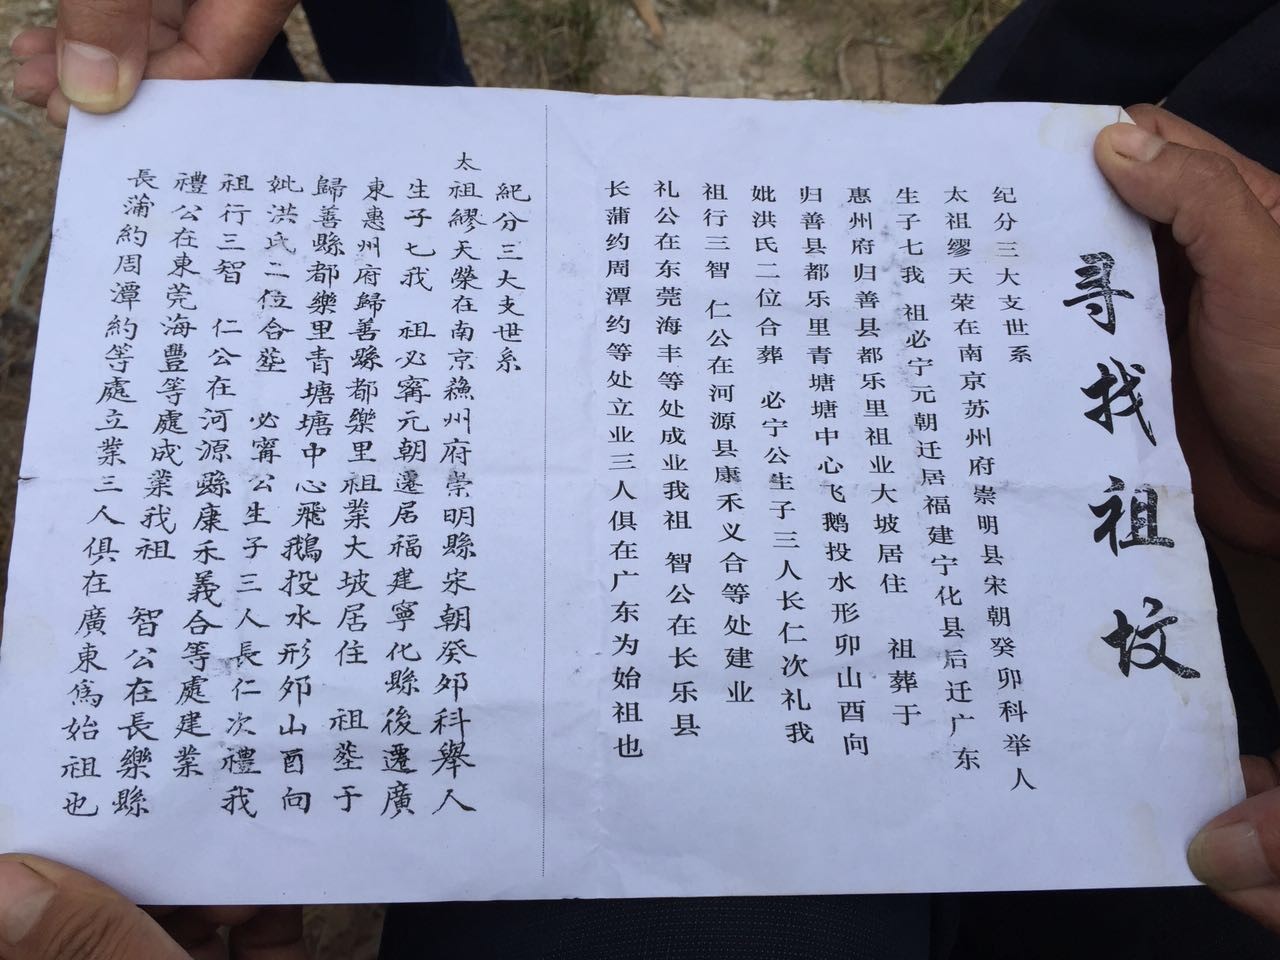 寻找祖坟
纪分三大支世系
太祖缪天荣在南京苏州府崇明县宋朝癸卯科举人
生子七我 祖必宁元朝迁居福建宁化县后迁广东
惠州府归善县都乐里祖业大坡居住 祖葬于
归善县都乐里青塘塘中心飞鹅投水形卯山酉向
妣洪氏二位合葬 必宁公生子三人长仁次礼我
祖行三智 仁公在河源县康禾义合等处建业
礼公在东莞海丰等处成业我祖 智公在长乐县
长蒲约周潭约等处立业三人俱在广东为始祖也
紀分三大支世系
太祖繆天榮在南京蘓州府崇明縣宋朝癸夘科舉人
生子七我 祖必甯元朝遷居福建寧化縣後遷廣
東惠州府歸善縣都樂里祖業大坡居住 祖塟于
歸善縣都樂里青塘塘中心飛鵝投水形夘山酉向
妣洪氏二位合塟 必甯公生子三人長仁次禮我
祖行三智 仁公在河源縣康禾義合等處建業
禮公在東莞海豐等處成業我祖 智公在長樂縣
長蒲約周潭約等處立業三人俱在廣東爲始祖也